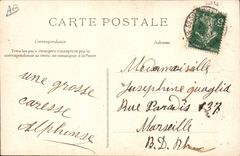 CARTE POSTALE
Correspondance
Adresse
Tous les pays étrangers n'acceptent pas la
correspondance au recto, se renseigner à la Poste
une grosse
caresse
Alphonse
Mademoiselle
Josephine quaglia
Rue Paradis 137
Marseille
B. D. Rh